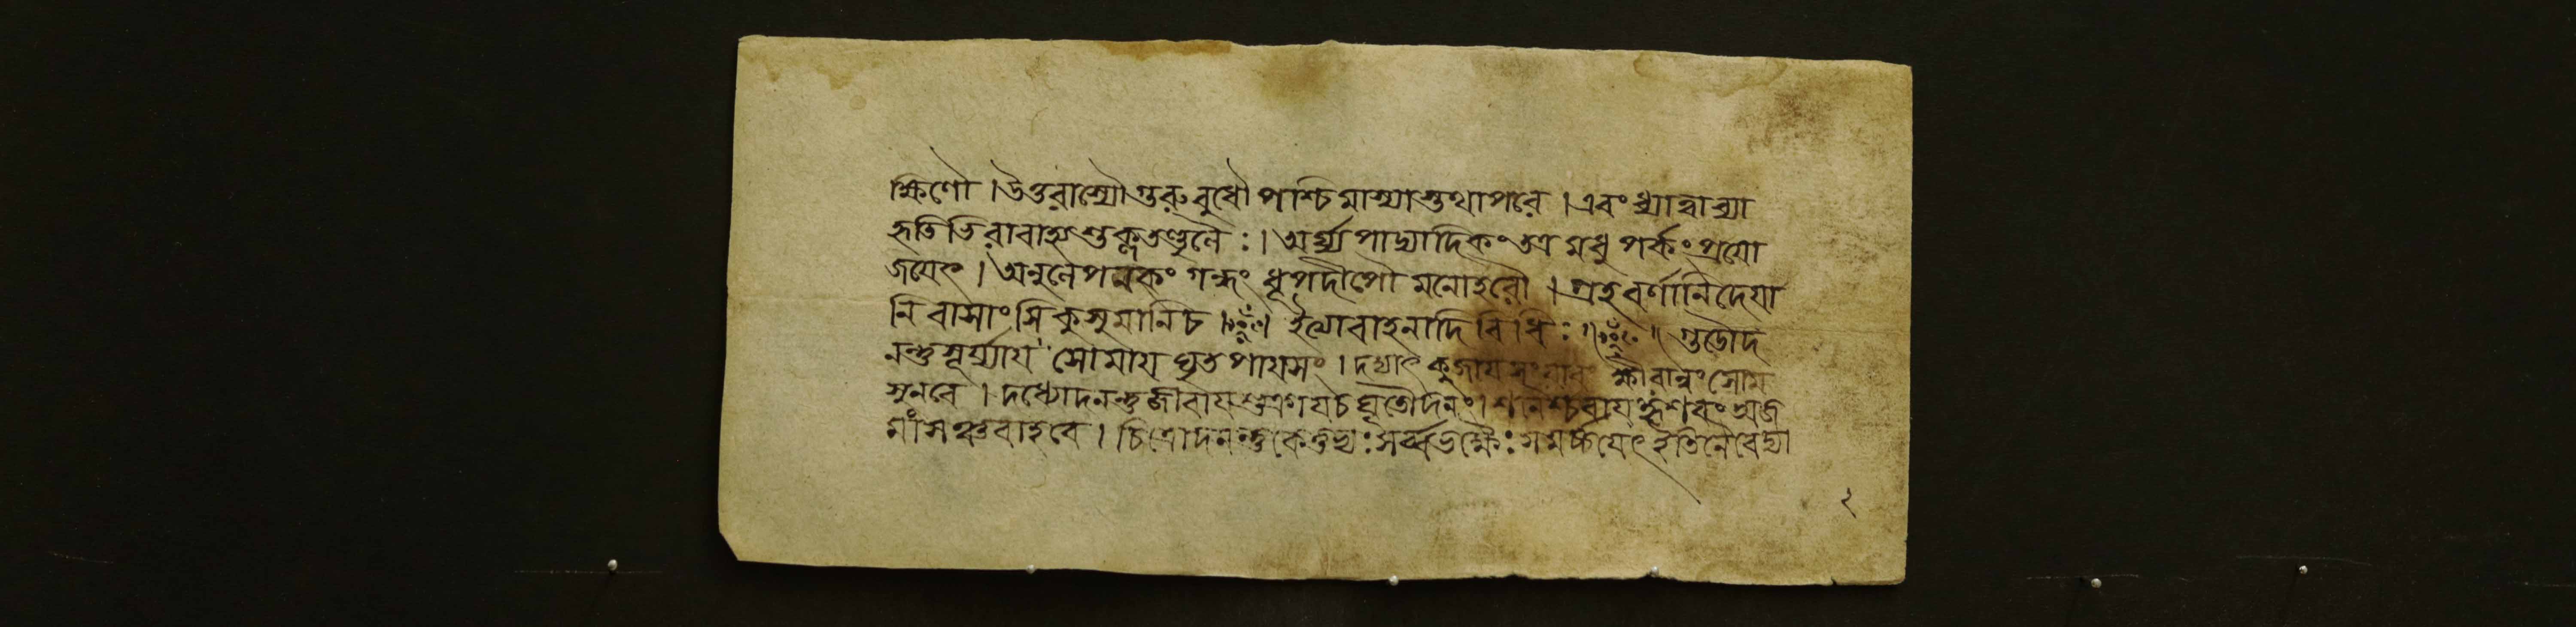 ক্ষিণৌ । উত্তরাস্যৌ গুরুবুধৌ পশ্চিমাস্যাস্তথাপরে । এবং ধ্যাত্বা ব্যা
হৃতিভিরাবাহ্য শুক্লতণ্ডুলৈঃ । অর্ঘ্য পাদ্যাদিকং তত্র মধুপর্কং প্রযো
জয়েৎ । অনুলেপনকং গন্ধং ধূপদীপৌ মনোহরৌ । গ্রহবর্ণানি দেয়া
নি বাসাংসি কুসুমানি চ । ইত্যাবাহনাদি বিধিঃ ॥ গুড়ৌদ
নন্তু সূর্য্যায় সোমায় ঘৃতপায়সং । দদ্যাৎ কুজায় সংযাবং ক্ষীরান্নং সোম
সূনবে । দধ্যোদনন্তু জীবায় শুক্রায় চ ঘৃতৌদনং । শনৈশ্চরায় কৃশরং অজ
মাংসঞ্চ রাহবে । চিত্রোদনন্তু কেতুভ্যঃ সর্ব্বভক্ষৈঃ সমর্চ্চয়েৎ ইতি নৈবেদ্যা
২